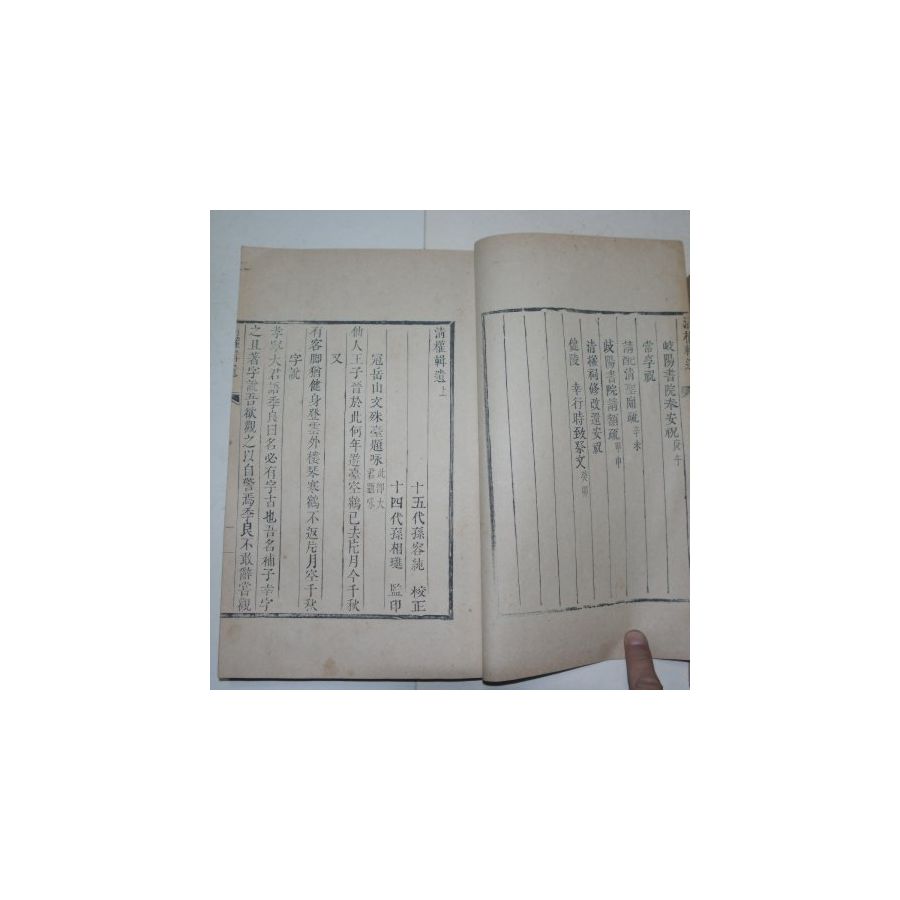 岐陽書院奉安祝 庚午
常享祝
請配清聖廟疏 辛未
岐陽書院請額疏 甲申
清權祠修改還安祝
健陵 幸行時致祭文 癸卯
清權輯遺 上
十五代孫容純 校正
十四代孫相 監印
冠岳山文殊臺題咏 此卽大君題咏
仙人王子晉於此何年遊臺空鶴已去片月今千秋
又
有客脚猶健身登雲外樓琴寒鶴不返片月空千秋
字說
孝寧大君語季良曰名必有字古也吾名補子幸字
之且著字說吾欲觀之以自警焉季良不敢辭嘗觀